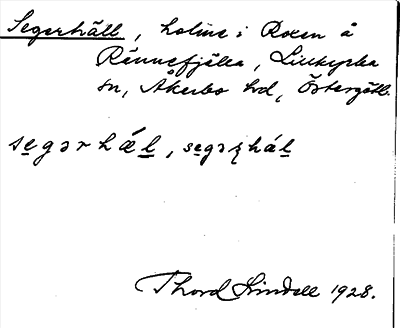 Segerhäll, holme i Roxen å
Rännefjälla, Lillkyrka
sn, Åkerbo hd, Östergötl.
segərhǽl, segəʀhál
Thord Lindell 1928.